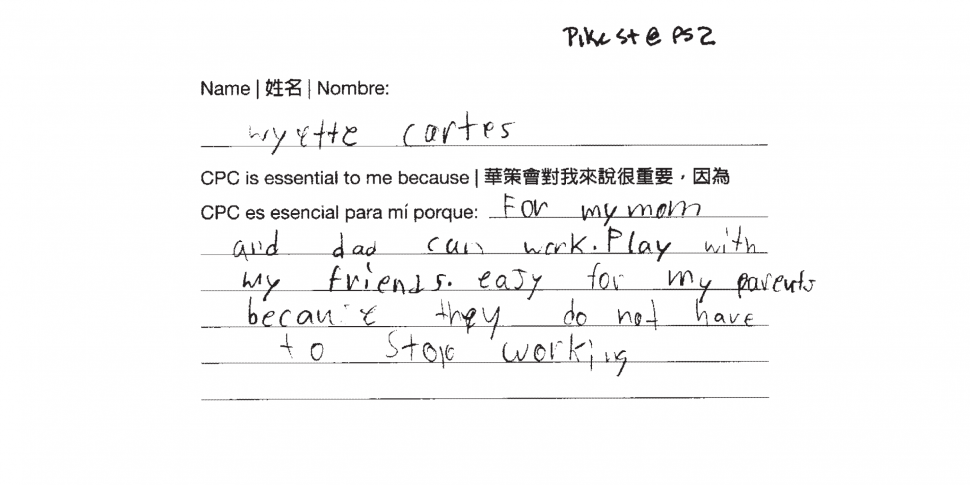 Pike St @ PS2
Name | 姓名 | Nombre:
wyette cartes
CPC is essential to me because | 華策會對我來說很重要，因為
CPC es esencial para mí porque: For my mom
and dad can work. Play with
my friends. easy for my parents
because they do not have
to stop working